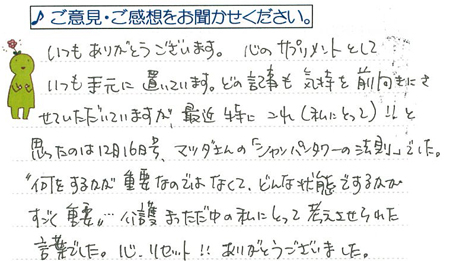 ♪ご意見・ご感想をお聞かせください。
いつもありがとうございます。心のサプリメントとして
いつも手元に置いています。どの記事も気持を前向きにさ
せていただいていますが、最近特にこれ(私にとって)!!と
思ったのは12月16日号、マツダさんの「シャンパンタワーの法則」でした。
"何をするかが重要なのではなくて、どんな状態でするかが
すごく重要〟… 介護まっただ中の私にとって考えさせられた
言葉でした。心、リセット!! ありがとうございました。